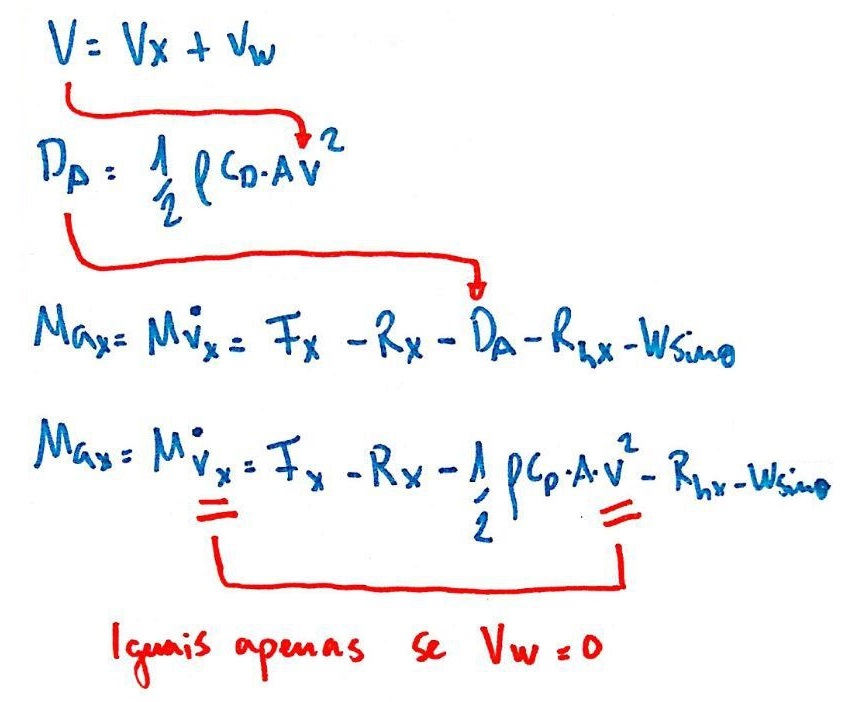 V = Vx + Vw
D_A = 1/2 ρ C_D·A V²
Ma_x = M v̇_x = F_x - R_x - D_A - R_hx - W sin θ
Ma_x = M v̇_x = F_x - R_x - 1/2 ρ C_D·A·V² - R_hx - W sin θ
Iguais apenas se Vw = 0